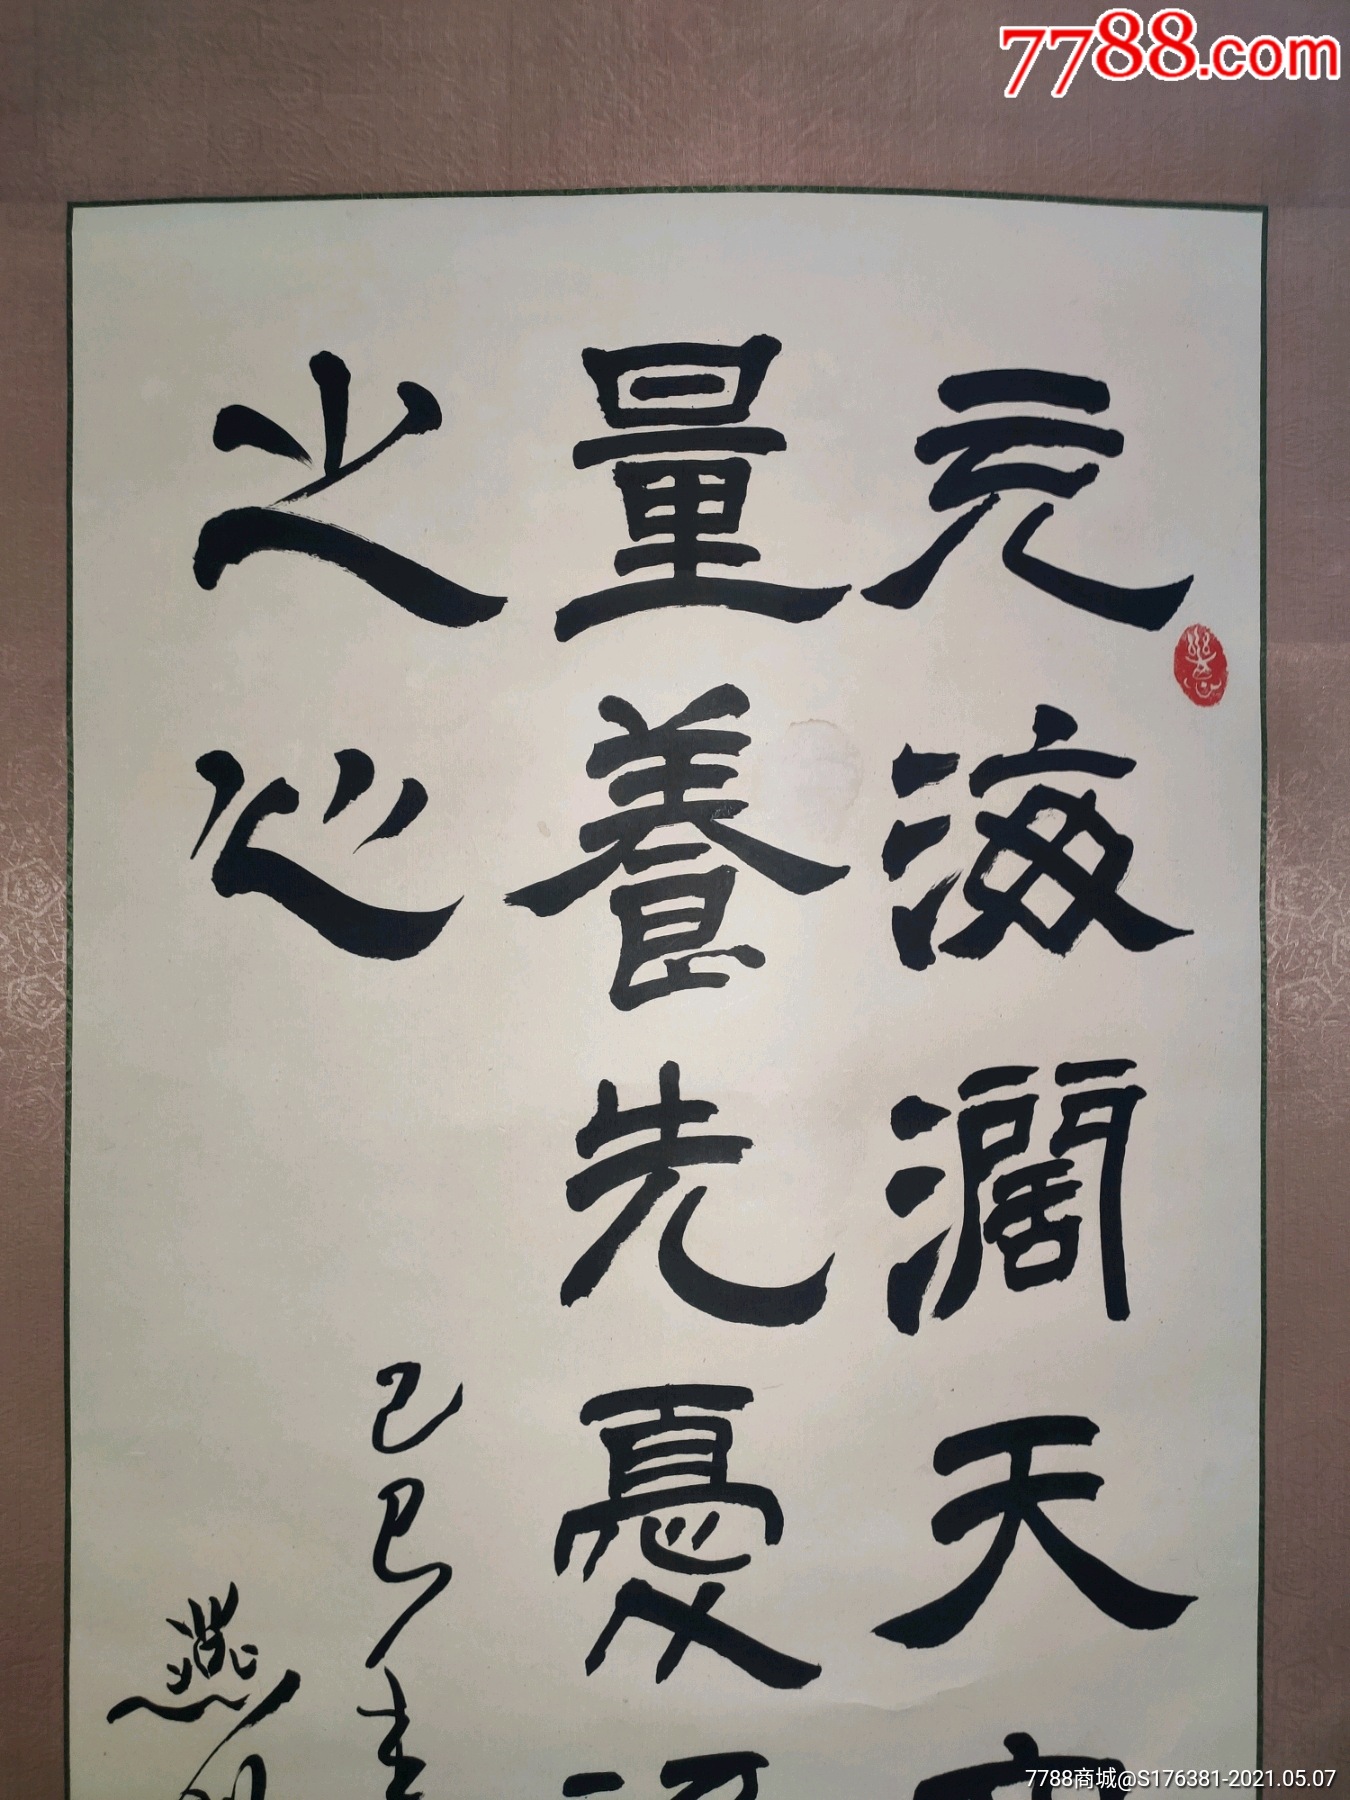 7788.com
元海濶天
量養先憂
之心
己巳
燕
7788商城@S176381-2021.05.07